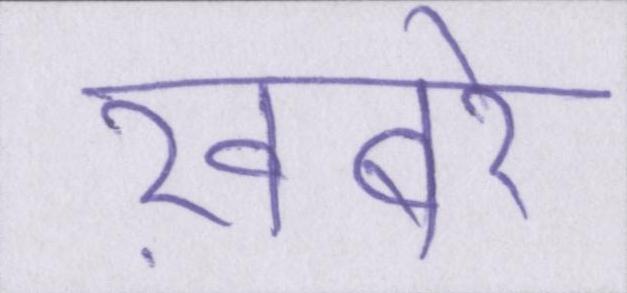 ख़बरे